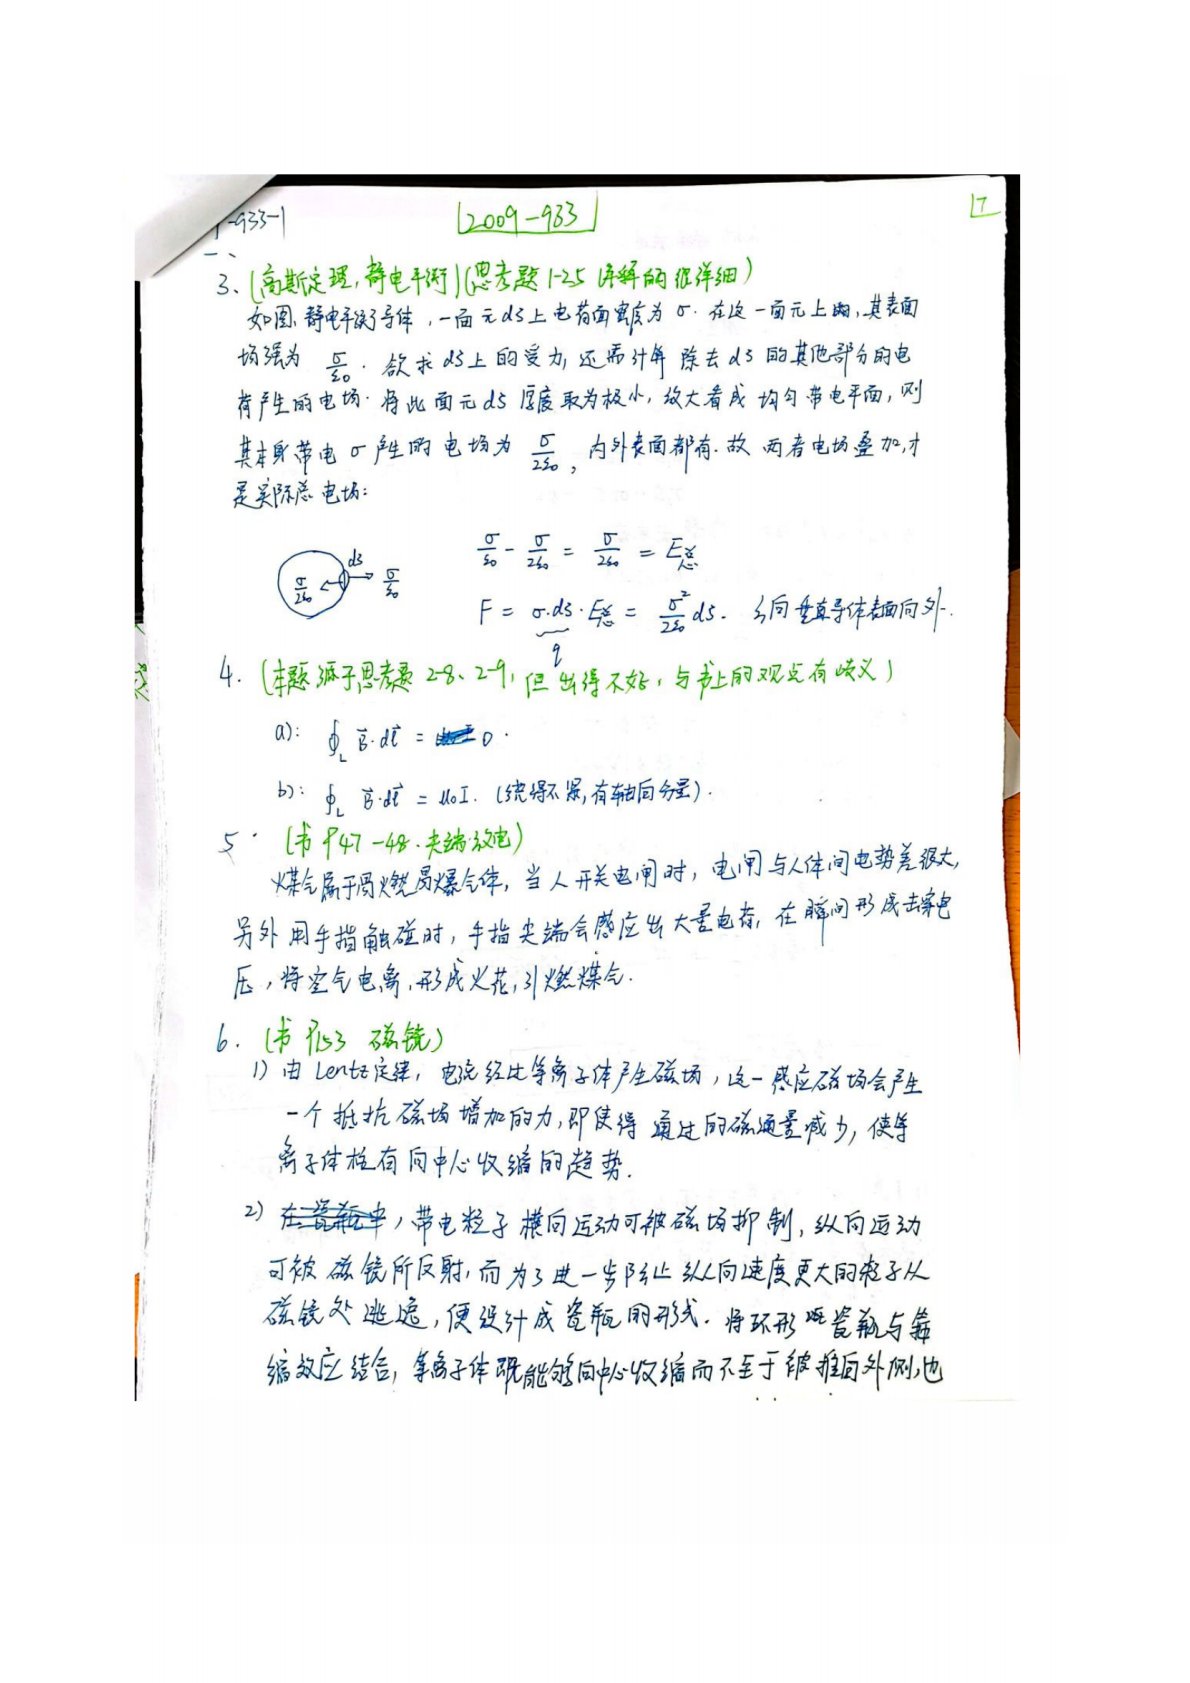 -933-1
2009-933
17
一、
3、(高斯定理,静电平衡)(思考题1-25 讲解的很详细)
如图,静电平衡导体,一面元ds上电荷面密度为σ.在这一面元上,其表面
场强为 σ/ε₀.欲求ds上的受力,还需计算除去ds的其他部分的电
荷产生的电场.将此面元ds厚度取为极小,放大看成均匀带电平面,则
其本身带电σ产生的电场为 σ/2ε₀,内外表面都有.故两者电场叠加,才
是实际总电场:
σ/ε₀ - σ/2ε₀ = σ/2ε₀ = E总
ds
σ/2ε₀ σ/ε₀
F = σ·ds·E总 = σ²/2ε₀ ds. 方向垂直导体表面向外.
q
4.(本题源于思考题2-8、2-9,但出得不好,与书上的观点有歧义)
a): ∮L B⃗·dl⃗ = 0.
b): ∮L B⃗·dl⃗ = μ₀I.(绕得不紧,有轴向分量).
5. (书P47-48.尖端放电)
煤气属于易燃易爆气体,当人开关电闸时,电闸与人体间电势差很大,
另外用手指触碰时,手指尖端会感应出大量电荷,在瞬间形成击穿电
压,将空气电离,形成火花,引燃煤气.
6. (书P153 磁镜)
1) 由Lentz定律,电流经过等离子体产生磁场,这一感应磁场会产生
一个抵抗磁场增加的力,即使得通过的磁通量减少,使等
离子体柱有向中心收缩的趋势.
2) ,带电粒子横向运动可被磁场抑制,纵向运动
可被磁镜所反射,而为了进一步阻止纵向速度更大的粒子从
磁镜处逃逸,便设计成瓷瓶的形式.将环形瓷瓶与箍
缩效应结合,等离子体既能够向中心收缩而不至于被推向外侧,也